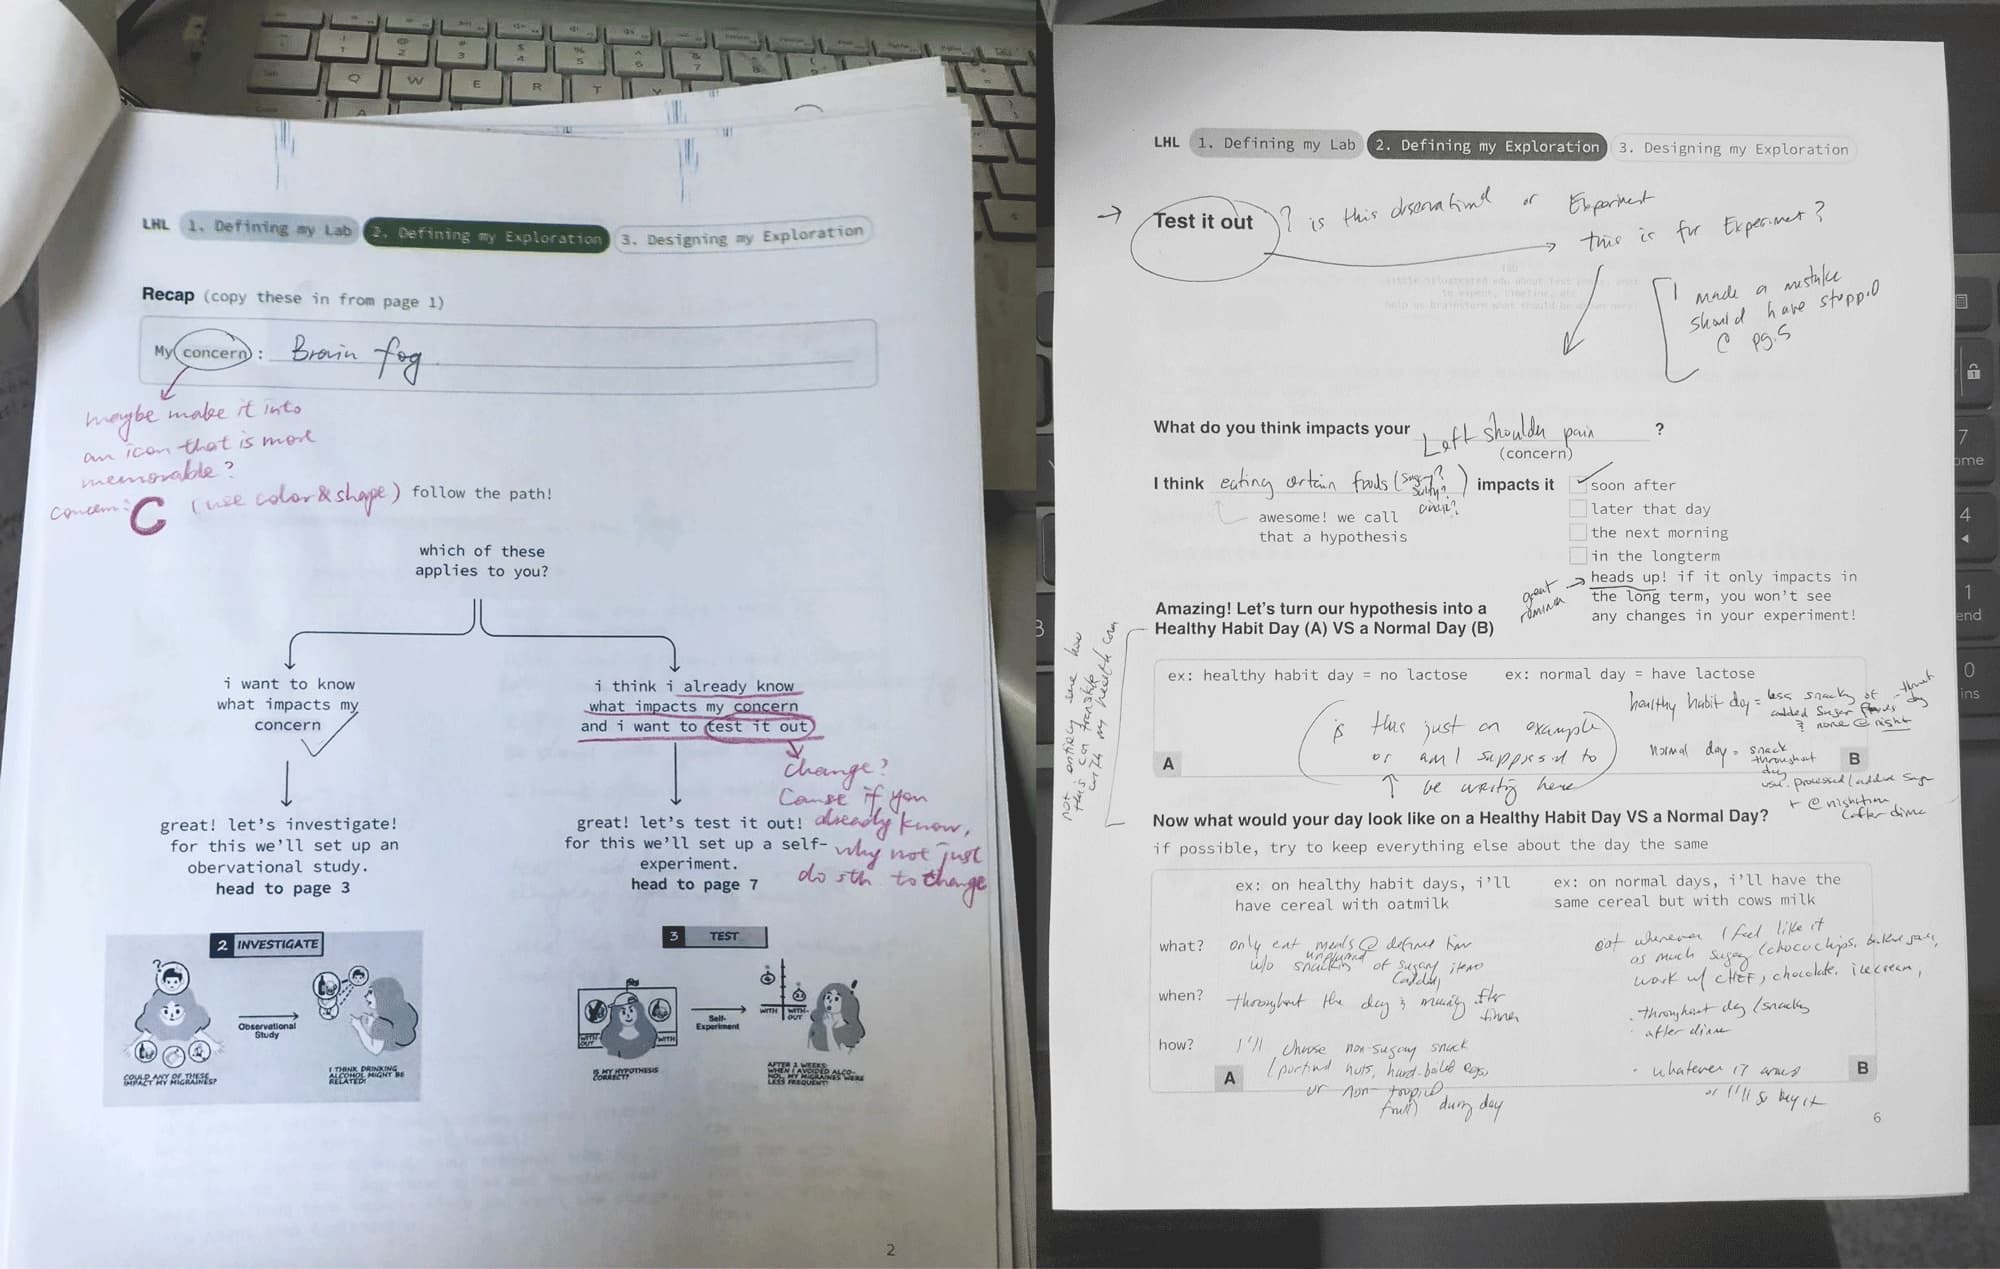 LHL 1. Defining my Lab 2. Defining my Exploration 3. Designing my Exploration
Recap (copy these in from page 1)
My concern : Brain fog
maybe make it into
an icon that is more
memorable?
concern: C (use color & shape)
follow the path!
which of these
applies to you?
i want to know
what impacts my
concern
great! let's investigate!
for this we'll set up an
obervational study.
head to page 3
i think i already know
what impacts my concern
and i want to test it out
change?
Cause if you
already know,
why not just
do sth. to change
great! let's test it out!
for this we'll set up a self-
experiment.
head to page 7
2 INVESTIGATE
?
Observational
Study
COULD ANY OF THESE
IMPACT MY MIGRAINES?
I THINK DRINKING
ALCOHOL MIGHT BE
RELATED!
3 TEST
WITH-
OUT
WITH
Self-
Experiment
WITH
WITH-
OUT
IS MY HYPOTHESIS
CORRECT?
AFTER 2 WEEKS:
WHEN I AVOIDED ALCO-
HOL, MY MIGRAINES WERE
LESS FREQUENT!
2
LHL 1. Defining my Lab 2. Defining my Exploration 3. Designing my Exploration
Test it out ? is this observational or Experiment
this is for Experiment?
I made a mistake
should have stopped
@ pg.5
What do you think impacts your Left shoulder pain ?
(concern)
I think eating certain foods (sugary? impacts it
salty?
awesome! we call
that a hypothesis
soon after
later that day
the next morning
in the longterm
great
reminder
heads up! if it only impacts in
the long term, you won't see
any changes in your experiment!
Amazing! Let's turn our hypothesis into a
Healthy Habit Day (A) VS a Normal Day (B)
not entirely sure how
this can translate
with my health concern
ex: healthy habit day = no lactose
ex: normal day = have lactose
is this just an example
or am I supposed to
be writing here
healthy habit day = less snacking of
added sugar foods
& none @ night
normal day = snack
throughout
day
+ @ nighttime
(after dinner
A
B
Now what would your day look like on a Healthy Habit Day VS a Normal Day?
if possible, try to keep everything else about the day the same
ex: on healthy habit days, i'll
have cereal with oatmilk
ex: on normal days, i'll have the
same cereal but with cows milk
what? only eat meals @ defined time
w/o unplanned snacking of sugary items
when? throughout the day & mainly after
dinner
how? I'll choose non-sugary snack
nuts, hard-boiled eggs
or non-tropical
fruit) during day
A
eat whenever I feel like it
as much sugary (choco chips, baked goods,
work w/ CHEF, chocolate, icecream,
· throughout day /snacks
· after dinner
· whatever is around
or I'll go buy it
B
6